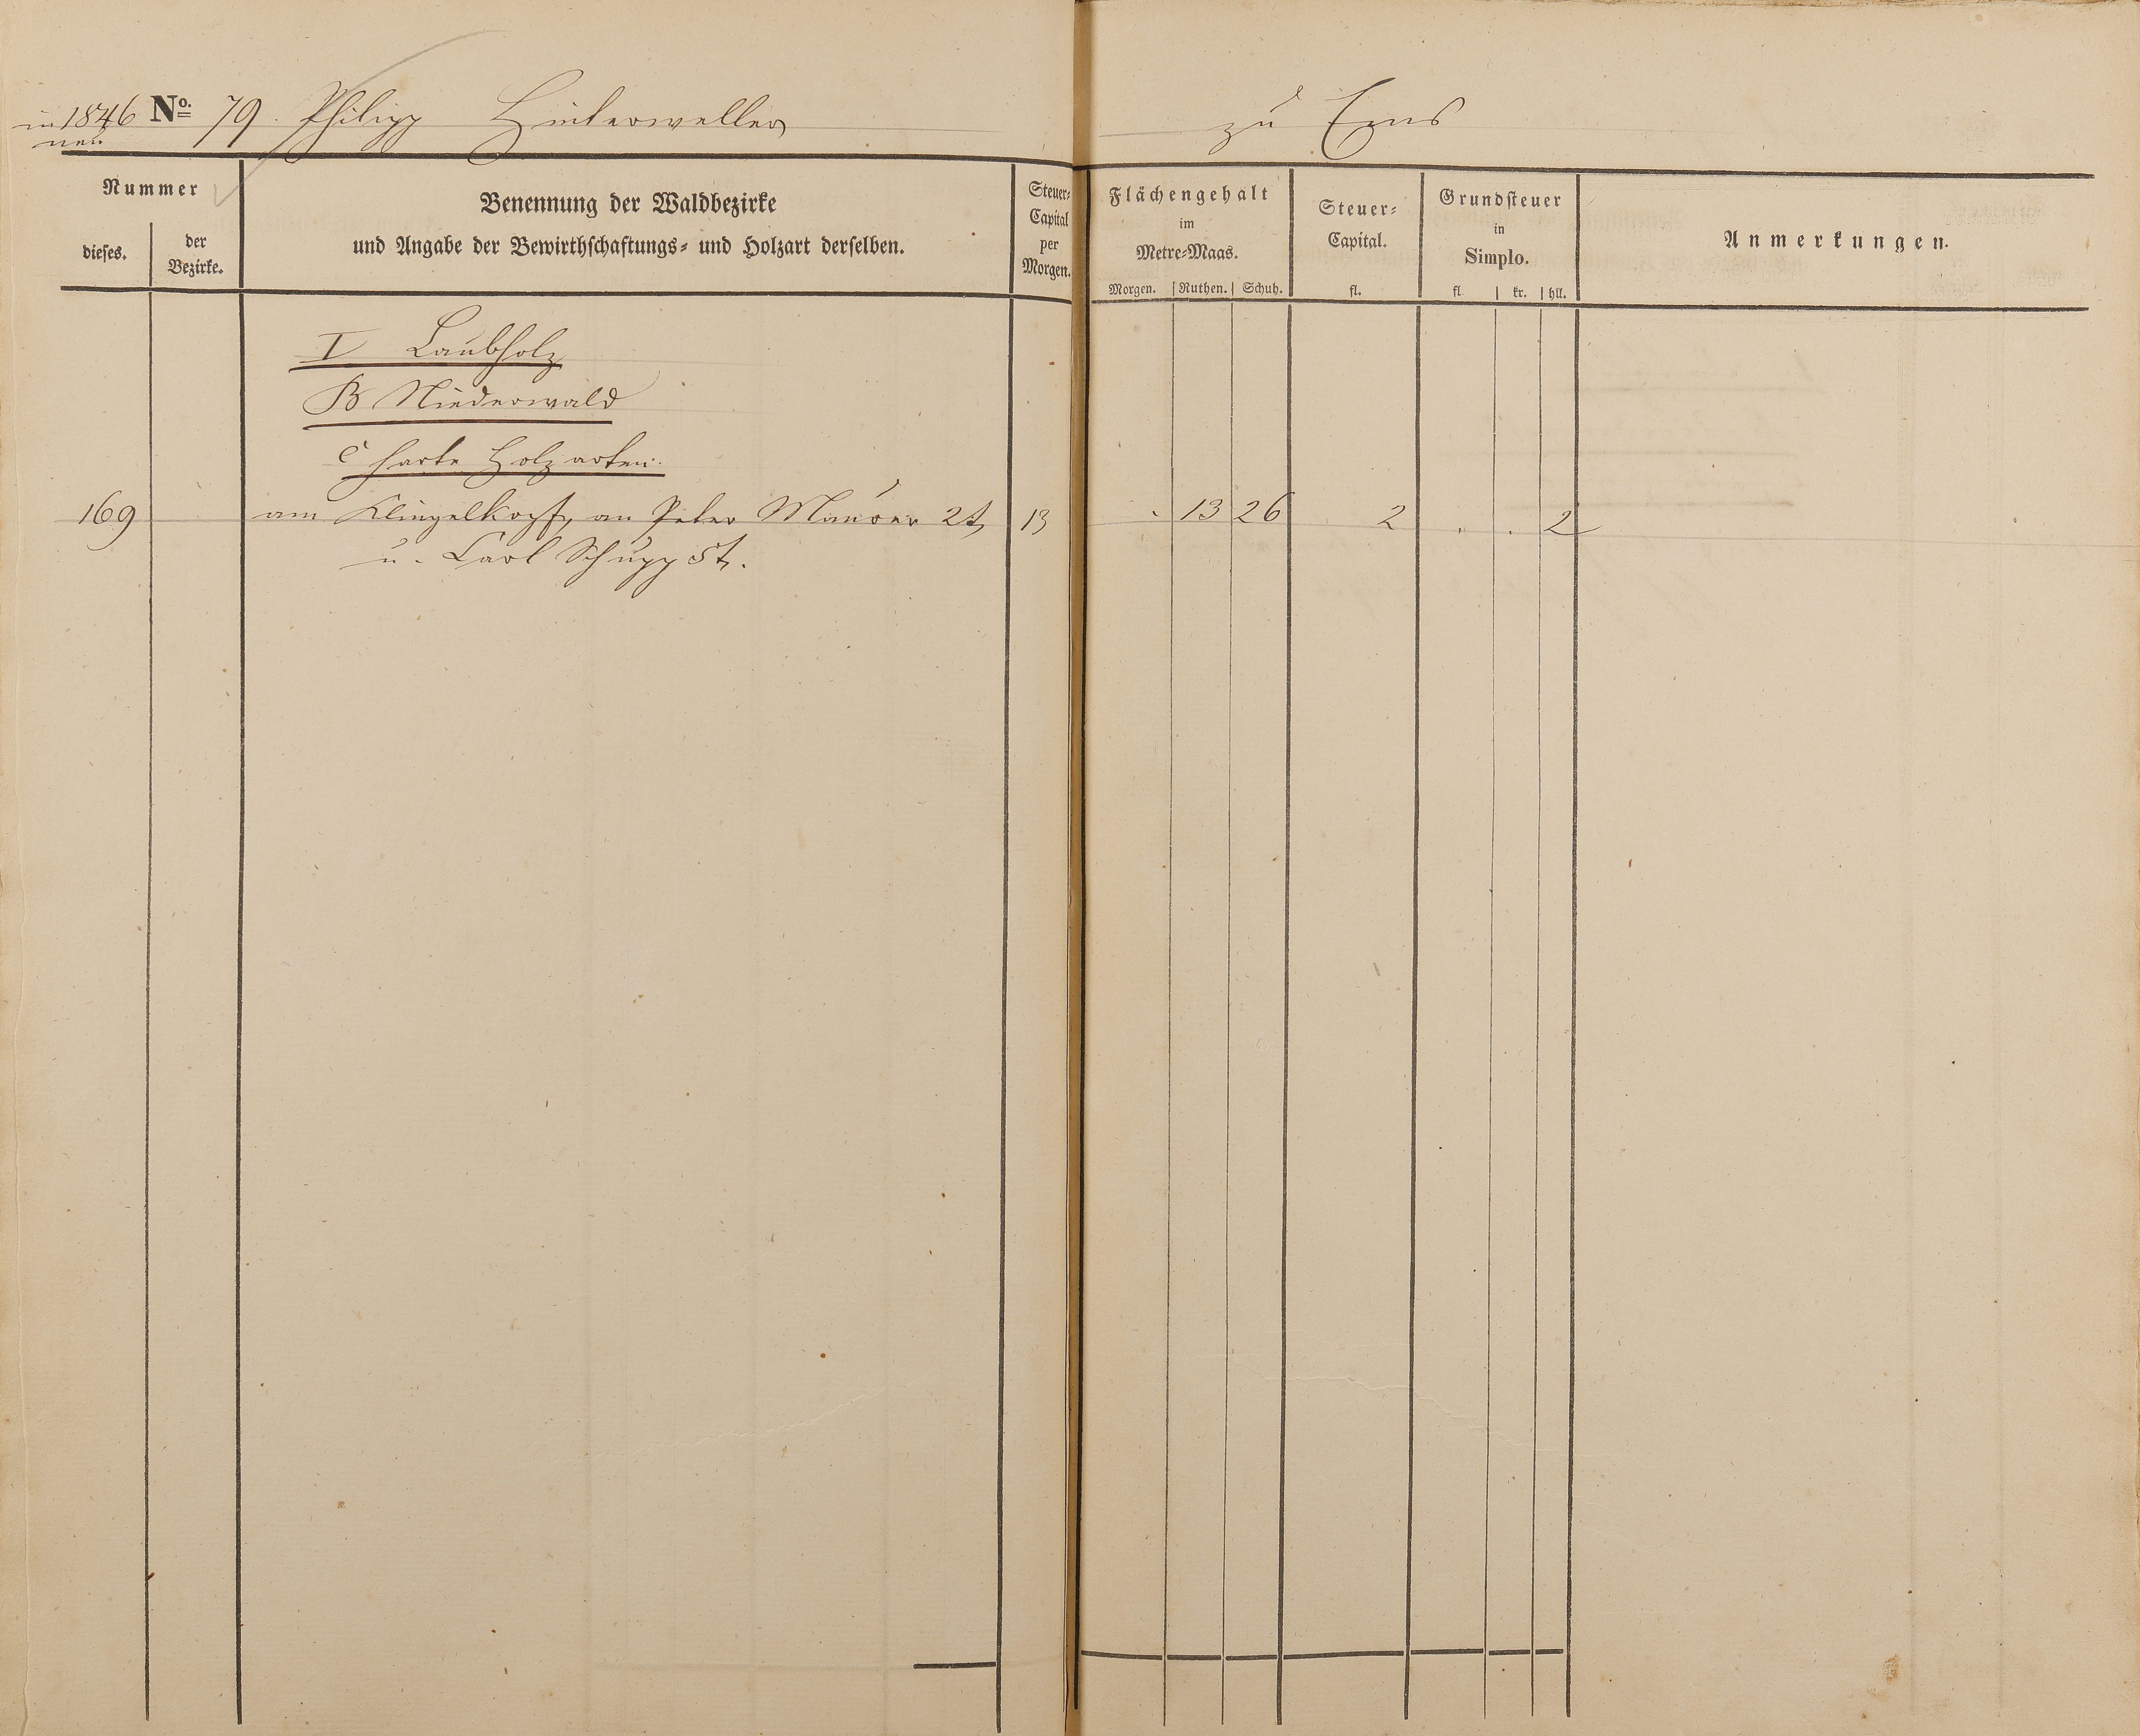 in 1846 No. 79. Philipp Hinterweller zu Ems
neu
Nummer
dieses.
der
Bezirke.
Benennung der Waldbezirke
und Angabe der Bewirthschaftungs- und Holzart derselben.
Steuer-
Capital
per
Morgen.
Flächengehalt
im
Metre-Maas.
Morgen. Ruthen. Schuh.
Steuer-
Capital.
fl.
Grundsteuer
in
Simplo.
fl kr. hll.
Anmerkungen.
I Laubholz
B Niederwald
c harte Holzarten.
169 am Klingelkopf, an Peter Maurer 2t, 13 . 13 26 2 . . 2
u. Carl Schupp 5t.